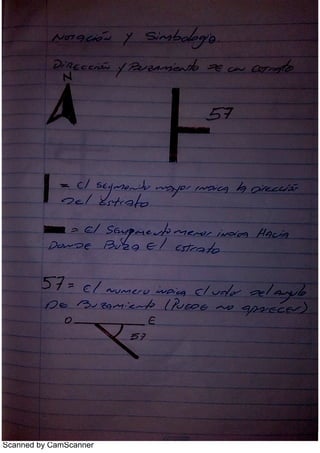 Notación y Simbología.
Dirección y Buzamiento de un estrato
N
57
= El segmento mayor indica la dirección
del estrato
= El Segmento menor indica Hacia
Donde Buza El estrato
57 = El numero indica el valor del angulo
De Buzamiento (Puede no aparecer)
O E
57
Scanned by CamScanner